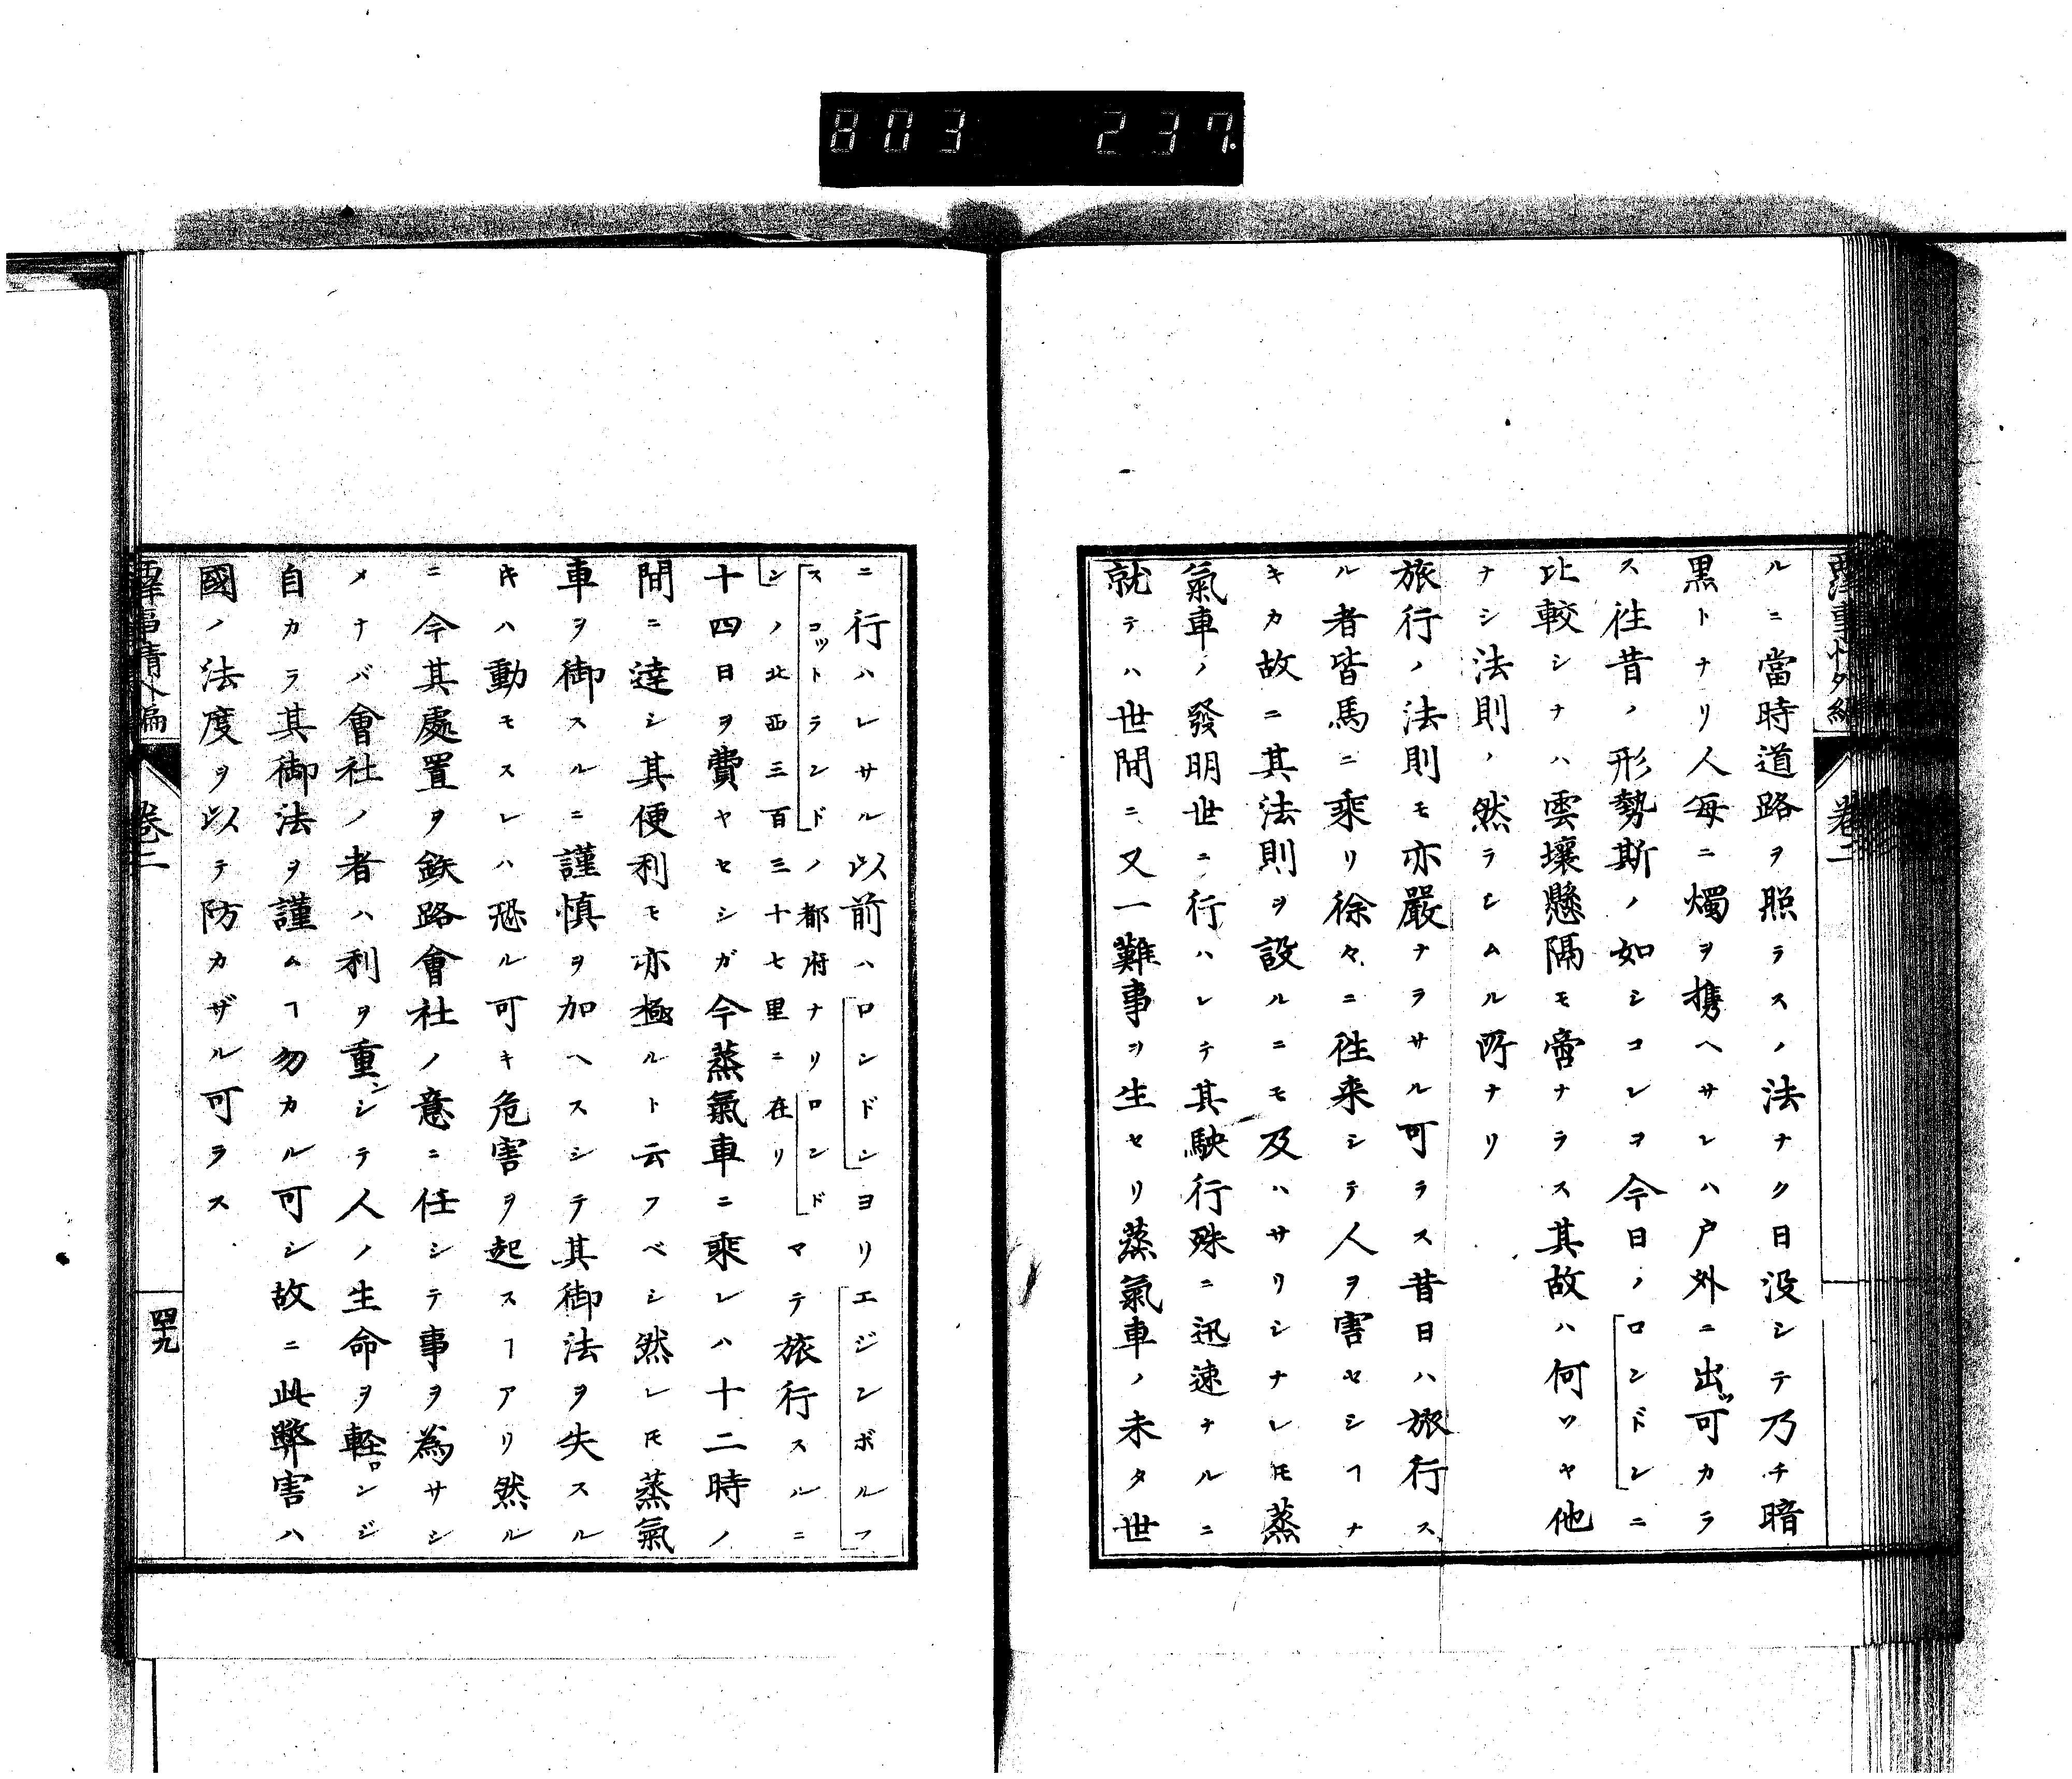 803 237.
西洋事情外編
卷二
ルニ當時道路ヲ照ラスノ法ナク日没シテ乃チ暗
黒トナリ人毎ニ燭ヲ携ヘサレハ戸外ニ出ッ可カラ
ス徃昔ノ形勢斯ノ如シコレヲ今日ノロンドンニ
比較シナハ雲壤懸隔モ啻ナラス其故ハ何ソヤ他
ナシ法則ノ然ラシムル所ナリ
旅行ノ法則モ亦嚴ナラサル可ラス昔日ハ旅行ス
ル者皆馬ニ乘リ徐々ニ徃来シテ人ヲ害セシヿナ
キカ故ニ其法則ヲ設ルニモ及ハサリシナレ𪜈蒸
氣車ノ發明世ニ行ハレテ其駛行殊ニ迅速ナルニ
就テハ世間ニ又一難事ヲ生セリ蒸氣車ノ未タ世
ニ行ハレサル以前ハロンドンヨリエジンボルフ
スコットランドノ都府ナリロンド
ンノ北西三百三十七里ニ在リ
マテ旅行スルニ
十四日ヲ費ヤセシガ今蒸氣車ニ乘レハ十二時ノ
間ニ達シ其便利モ亦極ルト云フベシ然レ𪜈蒸氣
車ヲ御スルニ謹慎ヲ加ヘスシテ其御法ヲ失スル
𬼀ハ動モスレハ恐ル可キ危害ヲ起スヿアリ然ル
ニ今其處置ヲ鉄路會社ノ意ニ任シテ事ヲ為サシ
メナバ會社ノ者ハ利ヲ重ンシテ人ノ生命ヲ輕ロンジ
自カラ其御法ヲ謹ムヿ勿カル可シ故ニ此弊害ハ
國ノ法度ヲ以テ防カザル可ラス
西洋事情外編
卷二
四十九